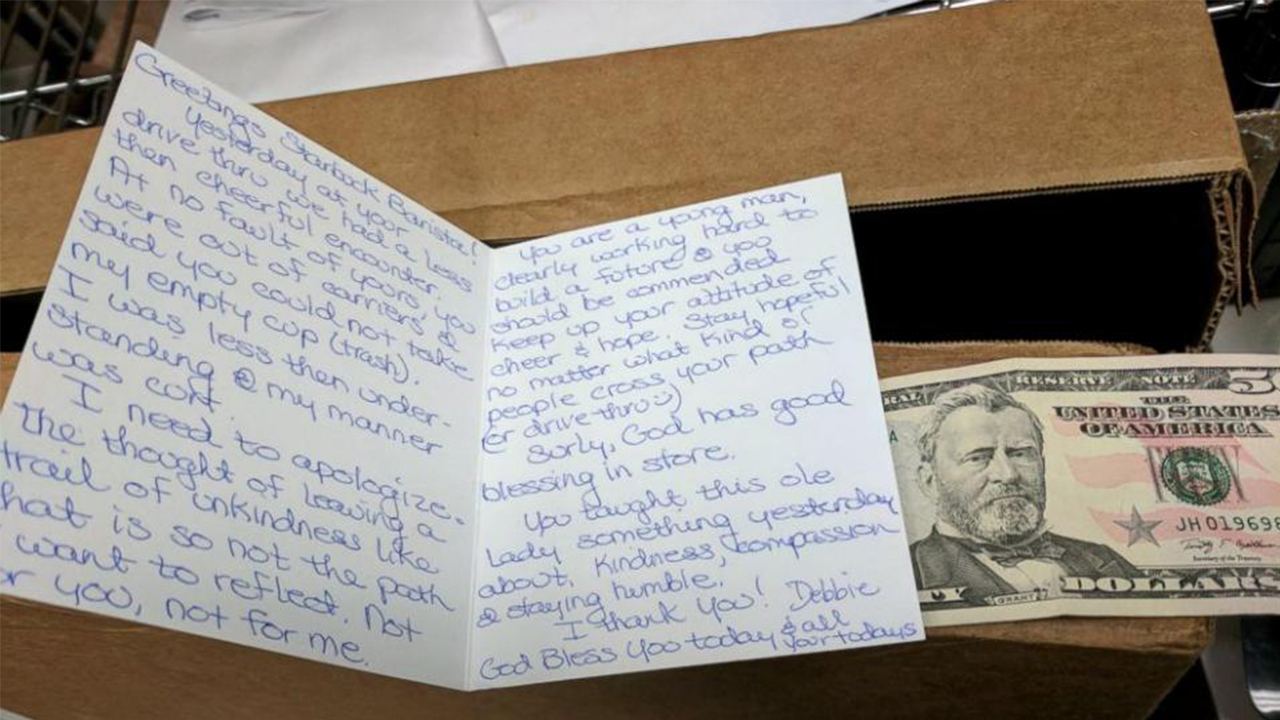 Greetings Starbuck Barista!
Yesterday at your
drive thru we had a less
then cheerful encounter.
At no fault of yours, you
were out of carriers &
said you could not take
my empty cup (trash).
I was less then under-
standing & my manner
was curt.
I need to apologize.
the thought of leaving a
trail of unkindness like
that is so not the path
I want to reflect. Not
for you, not for me.
You are a young man,
clearly working hard to
build a future & you
should be commended
keep up your attitude of
cheer & hope. Stay hopeful
no matter what kind of
people cross your path
(or drive thru :)
Surly, God has good
blessing in store.
You taught this ole
Lady something yesterday
about. Kindness, compassion
& staying humble.
I thank You! Debbie
God Bless You today & all
your todays
RESERVE NOTE
THE
UNITED STATES
OF AMERICA
JH 019698
Secretary of the Treasury
GRANT
DOLLARS